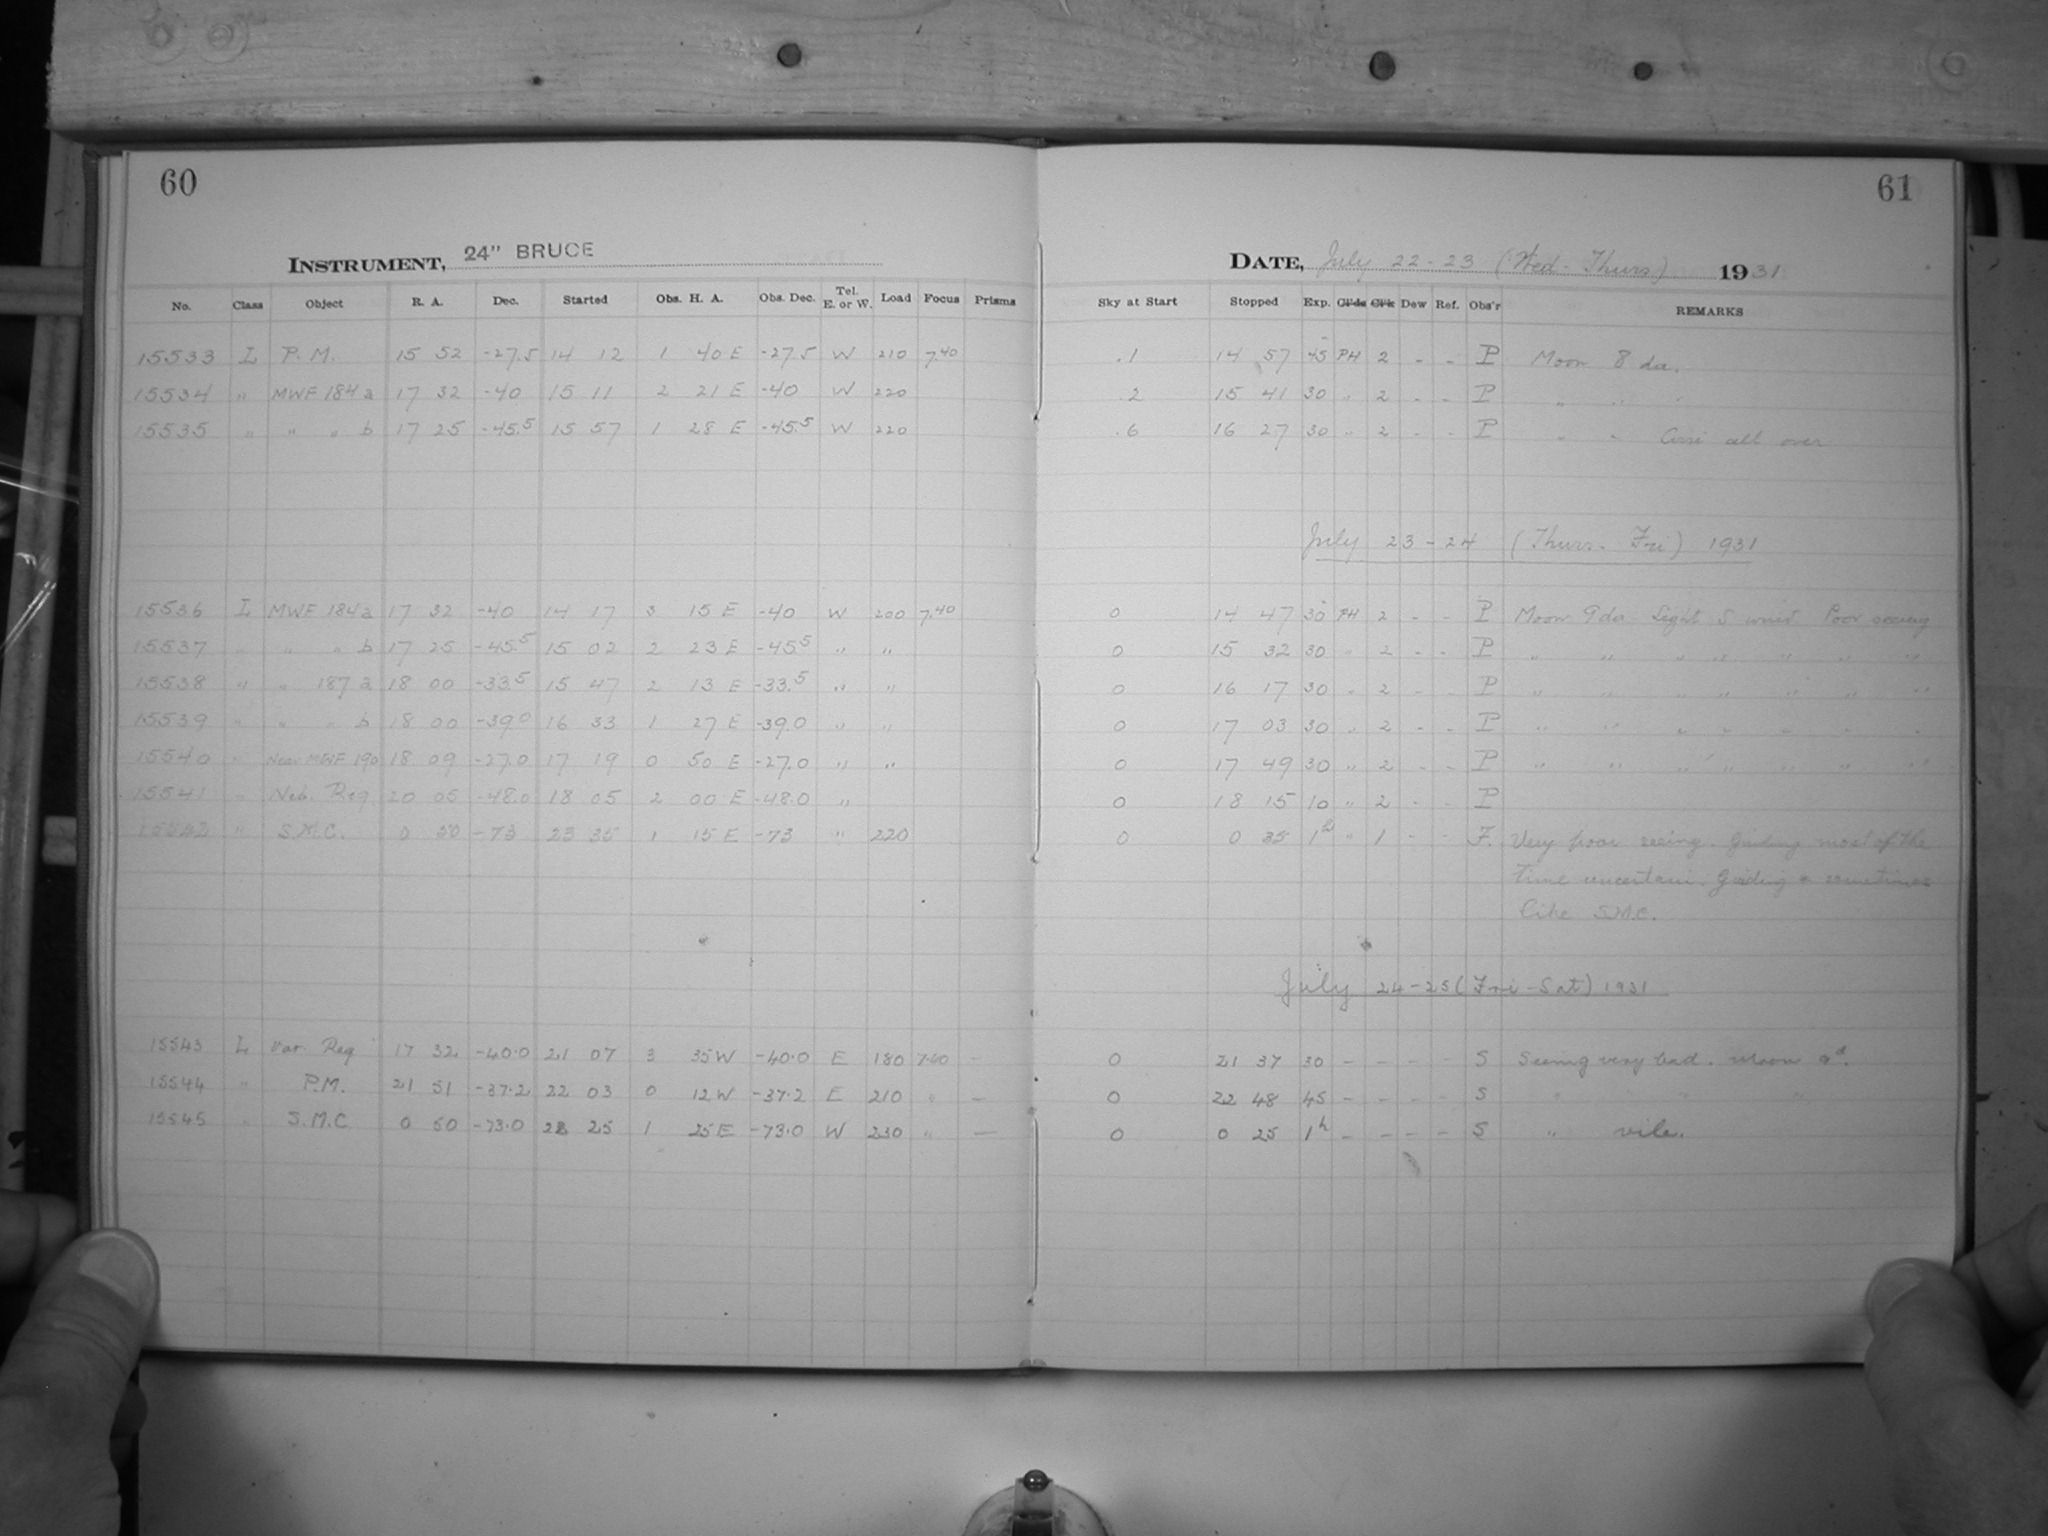 60
61
INSTRUMENT, 24" BRUCE
DATE, July 22-23 (Wed-Thurs) 1931
No. Class Object R. A. Dec. Started Obs. H. A. Obs. Dec. Tel. E. or W. Load Focus Prisms Sky at Start Stopped Exp. Dew Ref. Obs'r REMARKS
15533 L P.M. 15 52 -27.5 14 12 1 40 E -27.5 W 210 7.40 .1 14 57 45 PH 2 - - P Moon 8 da.
15534 " MWF 184 a 17 32 -40 15 11 2 21 E -40 W 220 .2 15 41 30 " 2 - - P " " "
15535 " " " b 17 25 -45.5 15 57 1 28 E -45.5 W 220 .6 16 27 30 " 2 - - P " " Cirri all over
July 23-24 (Thurs. Fri) 1931
15536 L MWF 184 a 17 32 -40 14 17 3 15 E -40 W 200 7.40 0 14 47 30 PH 2 - - P Moon 9 da Light S wind Poor seeing
15537 " " " b 17 25 -45.5 15 02 2 23 E -45.5 " " 0 15 32 30 " 2 - - P " " " " " " "
15538 " " 187 a 18 00 -33.5 15 47 2 13 E -33.5 " " 0 16 17 30 " 2 - - P " " " " " " "
15539 " " " b 18 00 -39.0 16 33 1 27 E -39.0 " " 0 17 03 30 " 2 - - P " " " " " " "
15540 " Near MWF 190 18 09 -27.0 17 19 0 50 E -27.0 " " 0 17 49 30 " 2 - - P " " " " " " "
15541 " Neb. Reg 20 05 -48.0 18 05 2 00 E -48.0 " 0 18 15 10 " 2 - - P
15542 " S.M.C. 0 50 -73 23 35 1 15 E -73 " 220 0 0 35 1h " 1 - - F. Very poor seeing. Guiding most of the
time uncertain. Guiding sometimes
like S.M.C.
July 24-25 (Fri-Sat) 1931
15543 L Var. Reg 17 32 -40.0 21 07 3 35 W -40.0 E 180 7.40 - 0 21 37 30 - - - - S Seeing very bad. Moon 9d.
15544 " P.M. 21 51 -37.2 22 03 0 12 W -37.2 E 210 " - 0 22 48 45 - - - - S " " "
15545 " S.M.C 0 50 -73.0 23 25 1 25 E -73.0 W 230 " - 0 0 25 1h - - - - S " vile.